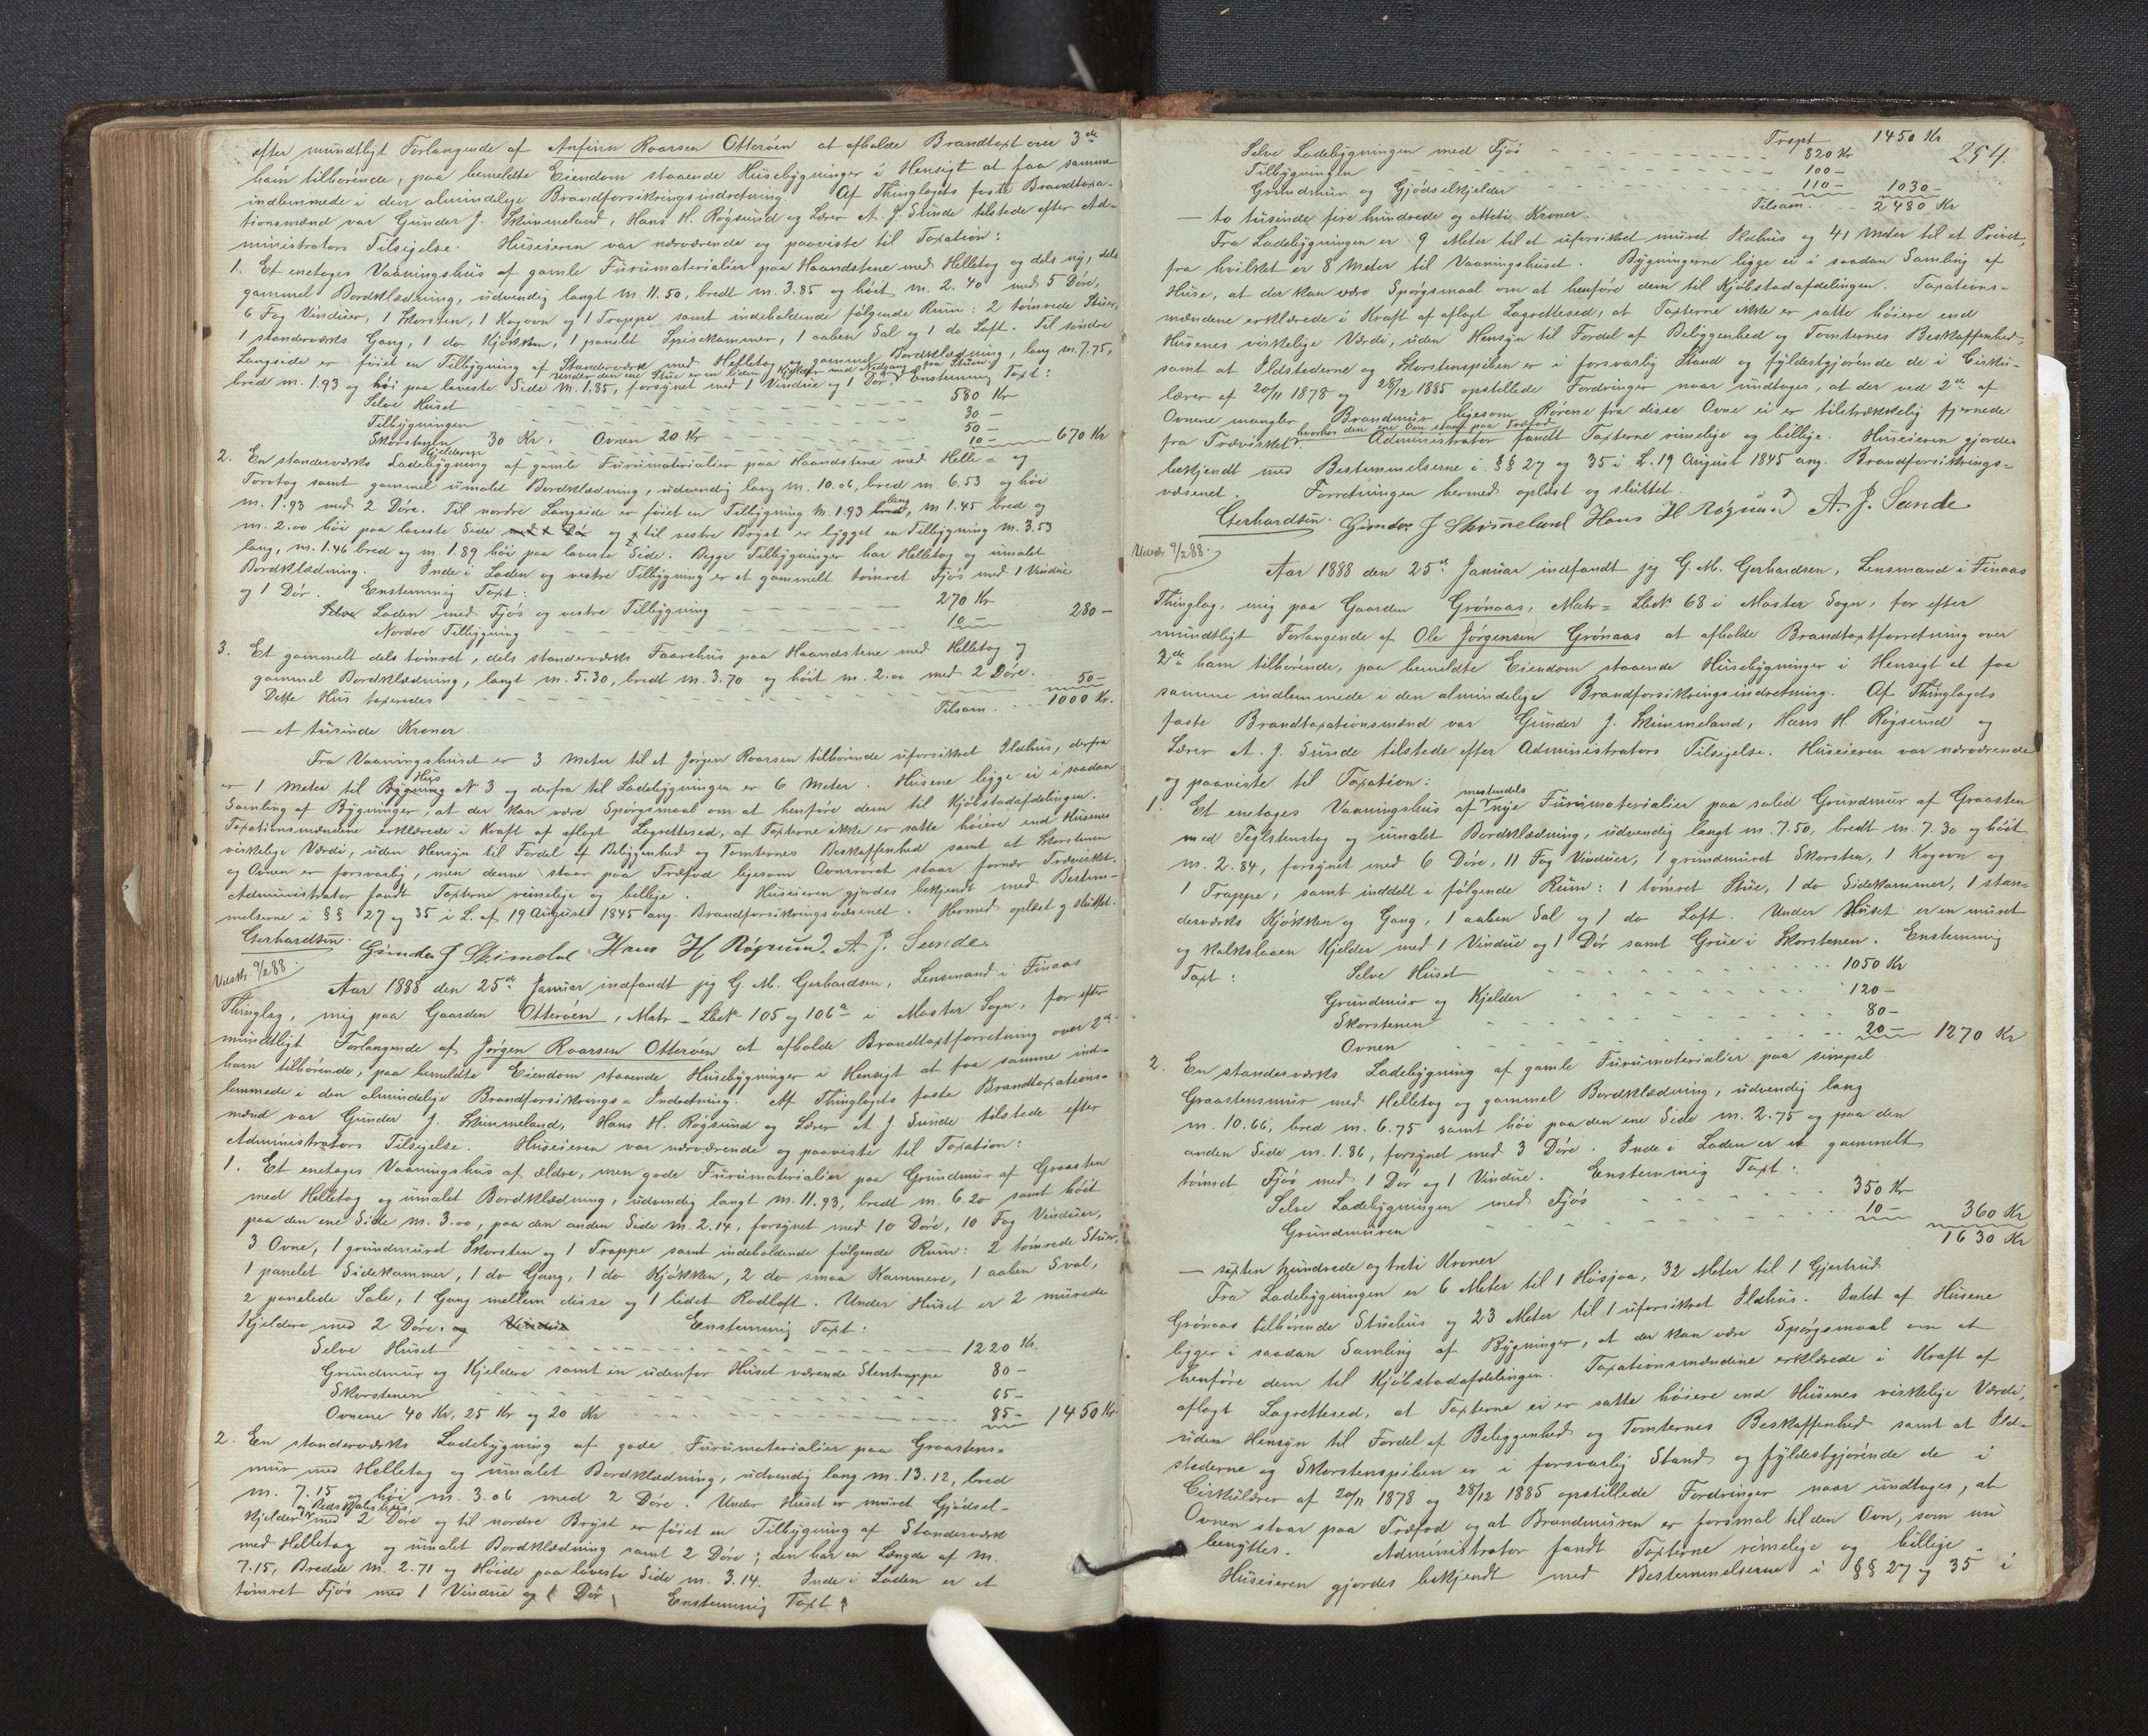 efter mundtligt Forlangende af Anfinn Roarsen Otterøen at afholde Brandtaxt over 3de
ham tilhørende, paa bemeldte Eiendom staaende Husebygninger i Hensigt at faa samme
indlemmede i den almindelige Brandforsikringsindretning. Af Thinglagets faste Brandtaxa-
tionsmænd var Gunder J. Skimmeland, Hans H. Røgsund og Lærer A. J. Sunde tilstede efter Ad-
ministrators Tilsigelse. Huseieren var nærværende og paaviste til Taxation:
1. Et enetages Vaaningshus af gamle Furumaterialier paa Haandstene med Helletag og dels ny, dels
gammel Bordklædning, udvendig langt m. 11.50, bredt m. 3.85 og høit m. 2.40 med 5 Døre,
6 Fag Vinduer, 1 Skorsten, 1 Kogovn og 1 Trappe samt indeholdende følgende Rum: 2 tømrede Stuer,
1 standerværks Gang, 1 do Kjøkken, 1 panelet Spisekammer, 1 aaben Sal og 1 do Loft. Til søndre
Langside er føiet en Tilbygning af Standerværk med Helletag og gammel Bordklædning, lang m. 7.75,
under den ene Stue er en liden Kjelder med Nedgang fra Stuen
bred m. 1.93 og høi paa laveste Side m. 1.85, forsynet med 1 Vindue og 1 Dør. Enstemmig Taxt:
Selve Huset 580 Kr
Tilbygningen 30 –
Skorstenen 30 Kr, Ovnen 20 Kr 50 –
Kjelderen 10 – 670 Kr
2. En standerværks Ladebygning af gamle Furumaterialier paa Haandstene med Helle- og
Torvtag samt gammel umalet Bordklædning, udvendig lang m. 10.06, bred m. 6.53 og høi
m. 1.93 med 2 Døre. Til nordre Langside er føiet en Tilbygning m. 1.93 bred lang, m 1.45 bred og
m. 2.00 høi paa laveste Side med 1 Dør og til vestre Bryst er bygget en Tilbygning m. 3.53
lang, m. 1.46 bred og m. 1.89 høi paa laveste Side. Begge Tilbygninger har Helletag og umalet
Bordklædning. Inde i Laden og vestre Tilbygning er et gammelt tømret Fjøs med 1 Vindue
og 1 Dør. Enstemmig Taxt:
Selve Laden med Fjøs og vestre Tilbygning 270 Kr
Nordre Tilbygning 10 – 280 –
3. Et gammelt dels tømret, dels standerværks Faarehus paa Haandstene med Helletag og
gammel Bordklædning, langt m. 5.30, bredt m. 3.70 og høit m. 2.00 med 2 Døre.
Dette Hus taxeredes 50 –
Tilsam. 1000 Kr.
– et tusinde Kroner.
Fra Vaaningshuset er 3 Meter til et Jørgen Roarsen tilhørende uforsikret Ildhus, derfra
er 1 Meter til Bygning Hus No 3 og derfra til Ladebygningen er 6 Meter. Husene ligge ei i saadan
Samling af Bygninger, at der kan være Spørgsmaal om at henføre dem til Kjøbstadafdelingen.
Taxationsmændene erklærede i Kraft af aflagt Lagrettesed, at Taxterne ikke er satte høiere end Husenes
virkelige Værdi, uden Hensyn til Fordel af Beliggenhed og Tomternes Beskaffenhed samt at Skorstenen
og Ovnen er forsvarlig, men denne staar paa Træfod ligesom Ovnsrøret staar fornær Træværket.
Administrator fandt Taxterne rimelige og billige. Huseieren gjordes bekjendt med Bestem-
melserne i §§ 27 og 35 i L. af 19 August 1845 ang. Brandforsikringsvæsenet. Hermed oplæst og sluttet.
Gerhardsen. Gunder J Skimelnd Hans H Røgsund. A. J. Sunde.
9/2 88.
Aar 1888 den 25de Januar indfandt jeg G. M. Gerhardsen, Lensmand i Finaas
Thinglag, mig paa Gaarden Otterøen, Matr – Lbk. 105 og 106a i Moster Sogn, for efter
mundtligt Forlangende af Jørgen Roarsen Otterøen at afholde Brandtaxtforretning over 2de
ham tilhørende, paa bemeldte Eiendom staaende Husebygninger i Hensigt at faa samme ind-
lemmede i den almindelige Brandforsikrings-Indretning. Af Thinglagets faste Brandtaxations-
mænd var Gunder J. Skimmeland, Hans H. Røgsund og Lærer A. J. Sunde tilstede efter
Administrators Tilsigelse. Huseieren var nærværende og paaviste til Taxation:
1. Et enetages Vaaningshus af ældre, men gode Furumaterialier paa Grundmur af Graasten
med Helletag og umalet Bordklædning, udvendig langt m. 11.93, bredt m. 6.20 samt høit
paa den ene Side m. 3.00, paa den anden Side m. 2.14, forsynet med 10 Døre, 10 Fag Vinduer,
3 Ovne, 1 grundmuret Skorsten og 1 Trappe samt indeholdende følgende Rum: 2 tømrede Stuer,
1 panelet Sidekammer, 1 do Gang, 1 do Kjøkken, 2 do smaa Kammere, 1 aaben Sval,
2 panelede Sale, 1 Gang mellem disse og 1 lidet Rodloft. Under Huset er 2 murede
Kjeldere med 2 Døre. og Vindue Enstemmig Taxt:
Selve Huset 1220 Kr.
Grundmur og Kjeldere samt en udenfor Huset værende Stentrappe 80 –
Skorstenen 65 –
Ovnene 40 Kr, 25 Kr og 20 Kr 85 – 1450 Kr
2. En standerværks Ladebygning af gode Furumaterialier paa Graastens-
mur med Helletag og umalet Bordklædning, udvendig lang m. 13.12, bred
m. 7.15 og høi m. 3.06 med 2 Døre. Under Huset er muret Gjødsel-
og Redskabshus,
kjelder med 2 Døre og til nordre Bryst er føiet en Tilbygning af Standerværk
med Helletag og umalet Bordklædning samt 2 Døre; den har en Længde af m.
7.15, Bredde m. 2.71 og Høide paa laveste Side m. 3.14. Inde i Laden er et
tømret Fjøs med 1 Vindue og 1 Dør. Enstemmig Taxt:
Trspt 1450 Kr
254.
Selve Ladebygningen med Fjøs 820 Kr
Tilbygningen 100 –
Grundmur og Gjødselkjelder 110 – 1030 –
Tilsam. 2480 Kr
– to tusinde fire hundrede og otteti Kroner.
Fra Ladebygningen er 9 Meter til et uforsikret muret Ildhus og 41 Meter til et Privet,
fra hvilket er 8 Meter til Vaaningshuset. Bygningerne ligge ei i saadan Samling af
Huse, at der kan være Spørgsmaal om at henføre dem til Kjøbstadafdelingen. Taxations-
mændene erklærede i Kraft af aflagt Lagrettesed, at Taxterne ikke er satte høiere end
Husenes virkelige Værdi, uden Hensyn til Fordel af Beliggenhed og Tomternes Beskaffenhed,
samt at Ildstederne og Skorstenspiben er i forsvarlig Stand og fyldestgjørende de i Cirku-
lærer af 20/11 1878 og 28/12 1885 opstillede Fordringer naar undtages, at der ved 2de af
Ovnene mangler Brandmur ligesom Rørene fra disse Ovne ei er tilstrækkelig fjernede
hvorhos den ene Ovn staar paa Træfod
fra Træværket. Administrator fandt Taxterne rimelige og billige. Huseieren gjordes
bekjendt med Bestemmelserne i §§ 27 og 35 i L. 19 August 1845 ang. Brandforsikrings-
væsenet. Forretningen hermed oplæst og sluttet.
Gerhardsen. Gunder J Skimeland Hans H Røgsund A. J. Sunde
9/2 88.
Aar 1888 den 25de Januar indfandt jeg G. M. Gerhardsen, Lensmand i Finaas
Thinglag, mig paa Gaarden Grønaas, Matr – Lbk 68 i Moster Sogn, for efter
mundtligt Forlangende af Ole Jørgensen Grønaas at afholde Brandtaxtforretning over
2de ham tilhørende, paa bemeldte Eiendom staaende Husebygninger i Hensigt at faa
samme indlemmede i den almindelige Brandforsikringsindretning. Af Thinglagets
faste Brandtaxationsmænd var Gunder J. Skimmeland, Hans H. Røgsund og
Lærer A. J. Sunde tilstede efter Administrators Tilsigelse. Huseieren var nærværende
og paaviste til Taxation:
mestendels
1. Et enetages Vaaningshus af nye Furumaterialier paa solid Grundmur af Graasten
med Teglstenstag og umalet Bordklædning, udvendig langt m. 7.50, bredt m. 7.30 og høit
m. 2.84, forsynet med 6 Døre, 11 Fag Vinduer, 1 grundmuret Skorsten, 1 Kogovn og
1 Trappe, samt inddelt i følgende Rum: 1 tømret Stue, 1 do Sidekammer, 1 stan-
derværks Kjøkken og Gang, 1 aaben Sal og 1 do Loft. Under Huset er en muret
og kalkslaaen Kjelder med 1 Vindue og 1 Dør samt Grue i Skorstenen. Enstemmig
Taxt: Selve Huset 1050 Kr
Grundmur og Kjelder 120 –
Skorstenen 80 –
Ovnen 20 – 1270 Kr
2. En standerværks Ladebygning af gamle Furumaterialier paa simpel
Graastensmur med Helletag og gammel Bordklædning, udvendig lang
m. 10.66, bred m. 6.75 samt høi paa den ene Side m. 2.75 og paa den
anden Side m. 1.86, forsynet med 3 Døre. Inde i Laden er et gammelt
tømret Fjøs med 1 Dør og 1 Vindue. Enstemmig Taxt:
Selve Ladebygningen med Fjøs 350 Kr
Grundmuren 10 – 360 Kr
1630 Kr
– sexten hundrede og treti Kroner
Fra Ladebygningen er 6 Meter til 1 Høsjaa, 32 Meter til 1 Gjertrud
Grønaas tilhørende Stuehus og 23 Meter til 1 uforsikret Ildhus. Intet af Husene
ligger i saadan Samling af Bygninger, at der kan være Spørgsmaal om at
henføre dem til Kjøbstadafdelingen. Taxationsmændene erklærede i Kraft af
aflagt Lagrettesed, at Taxterne ei er satte høiere end Husenes virkelige Værdi,
uden Hensyn til Fordel af Beliggenhed og Tomternes Beskaffenhed samt at Ild-
stederne og Skorstenspiben er i forsvarlig Stand og fyldestgjørende de i
Cirkulærer af 20/11 1878 og 28/12 1885 opstillede Fordringer naar undtages, at
Ovnen staar paa Træfod og at Brandmuren er forsmal til den Ovn, som nu
benyttes. Administrator fandt Taxterne rimelige og billige.
Huseieren gjordes bekjendt med Bestemmelserne i §§ 27 og 35 i